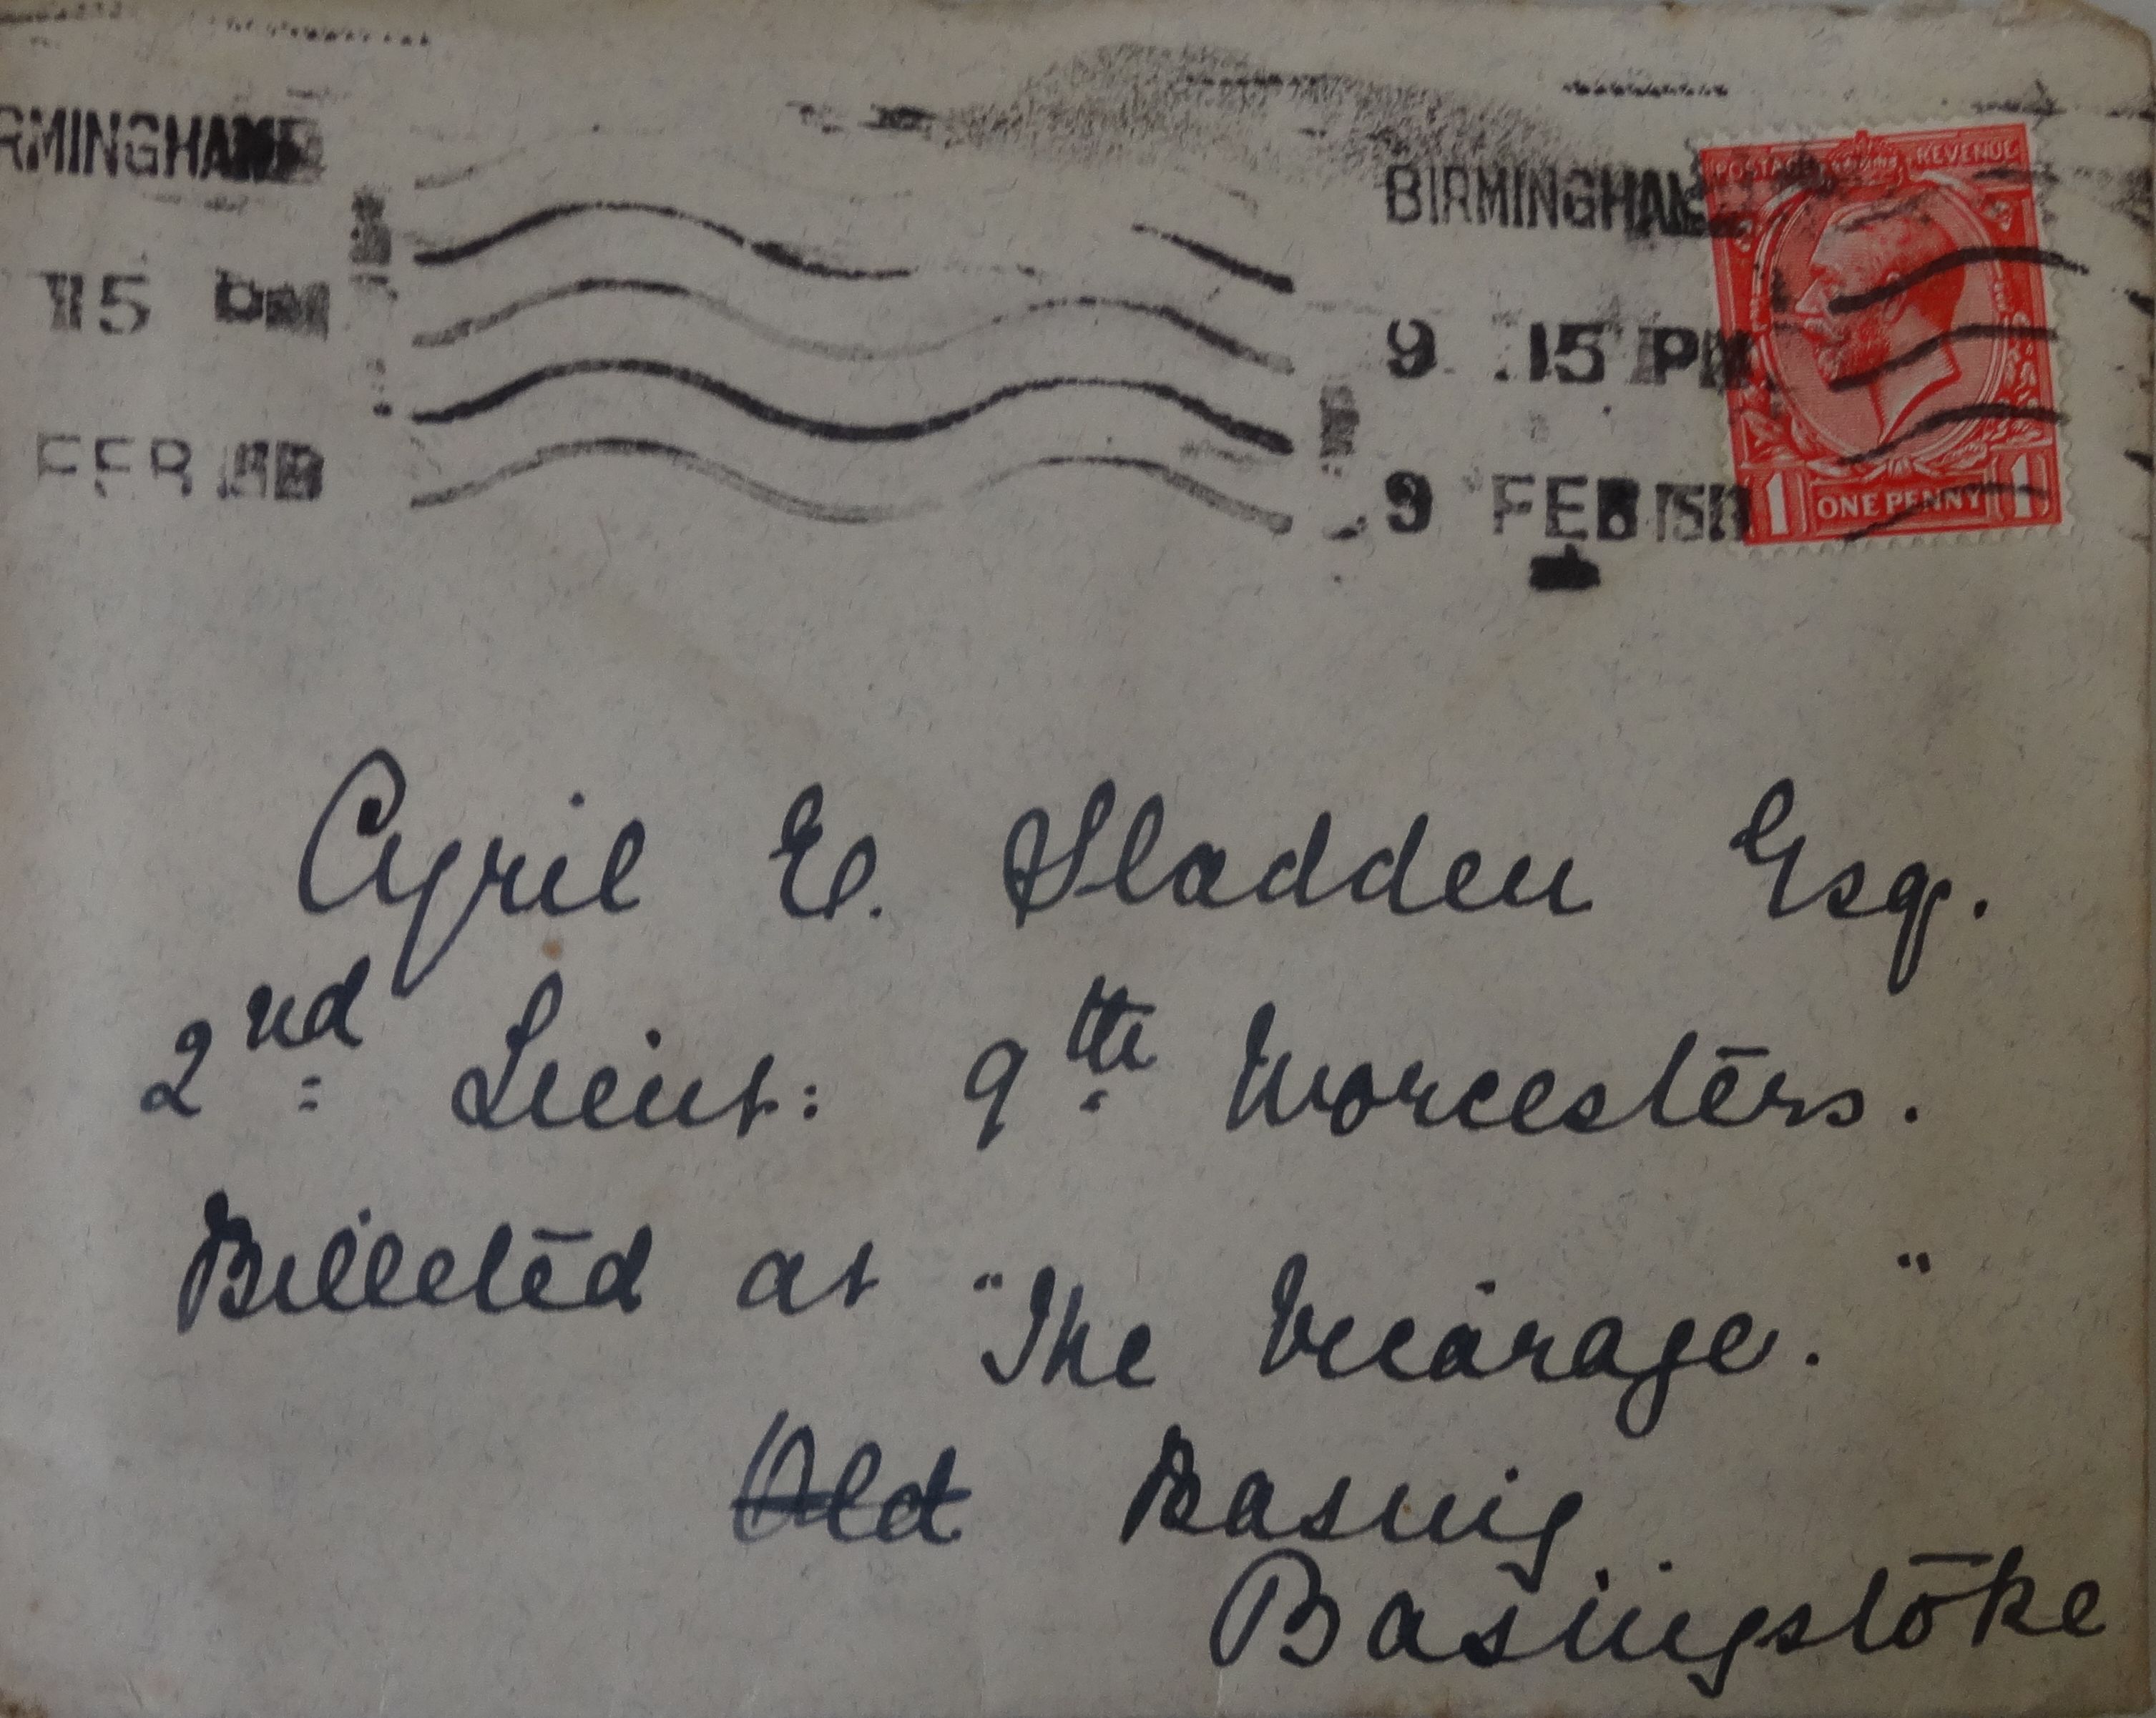 RMINGHAM
15 PM
FEB
BIRMINGHAM
9 .15 PM
9 FEB 15
POSTAGE REVENUE
1 ONE PENNY 1
Cyril E. Sladden Esq.
2nd Lieut: 9th Worcesters.
Billeted at "The Vicarage."
Old Basing
Basingstoke